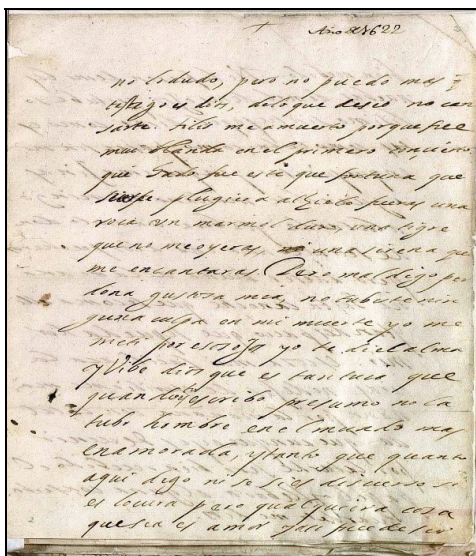 Año de 1622
no lo dudo, pero no puedo mas
dios, de lo que deseo no can
sarte. me a muerto porque fue
en el primero
que fue este que
plugiera al zielo fueras una
roca un marmol duro, una tigre
que no me oyeras, ni una sirena que
me encantaras. Pero mal digo per
dona gustosa mea, no tubiste nin
guna culpa en mi muerte yo me
yo te di el alma
y Vibe dios que es tan tuia que
quando escribo presumo no la
tubo hombre en el mundo mas
enamorada, y tanto que quanto
aqui digo ni se si es discurso si
es locura pero qualquiera cosa
que sea es amor y